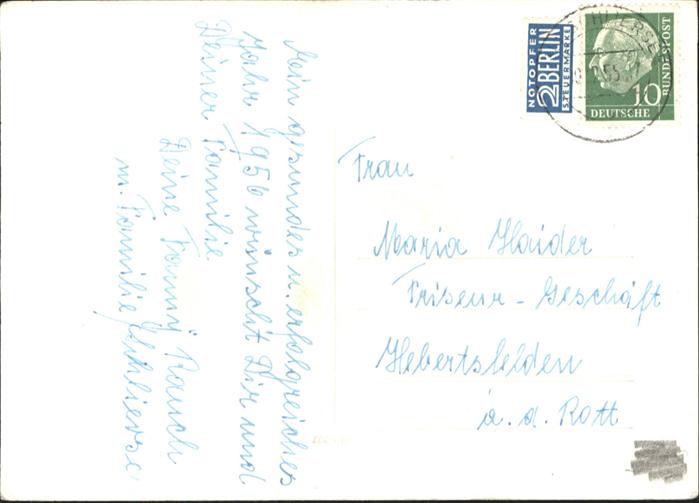 Mein gesundes u. erfolgreiches
Jahr 1956 wünscht Dir und
Deiner Familie
Deine Fanny Rauch
m. Familie Schliersee
NOTOPFER
2 BERLIN
STEUERMARKE
DEUTSCHE
BUNDESPOST
10
Frau
Maria Haider
Friseur - Geschäft
Hebertsfelden
a. d. Rott